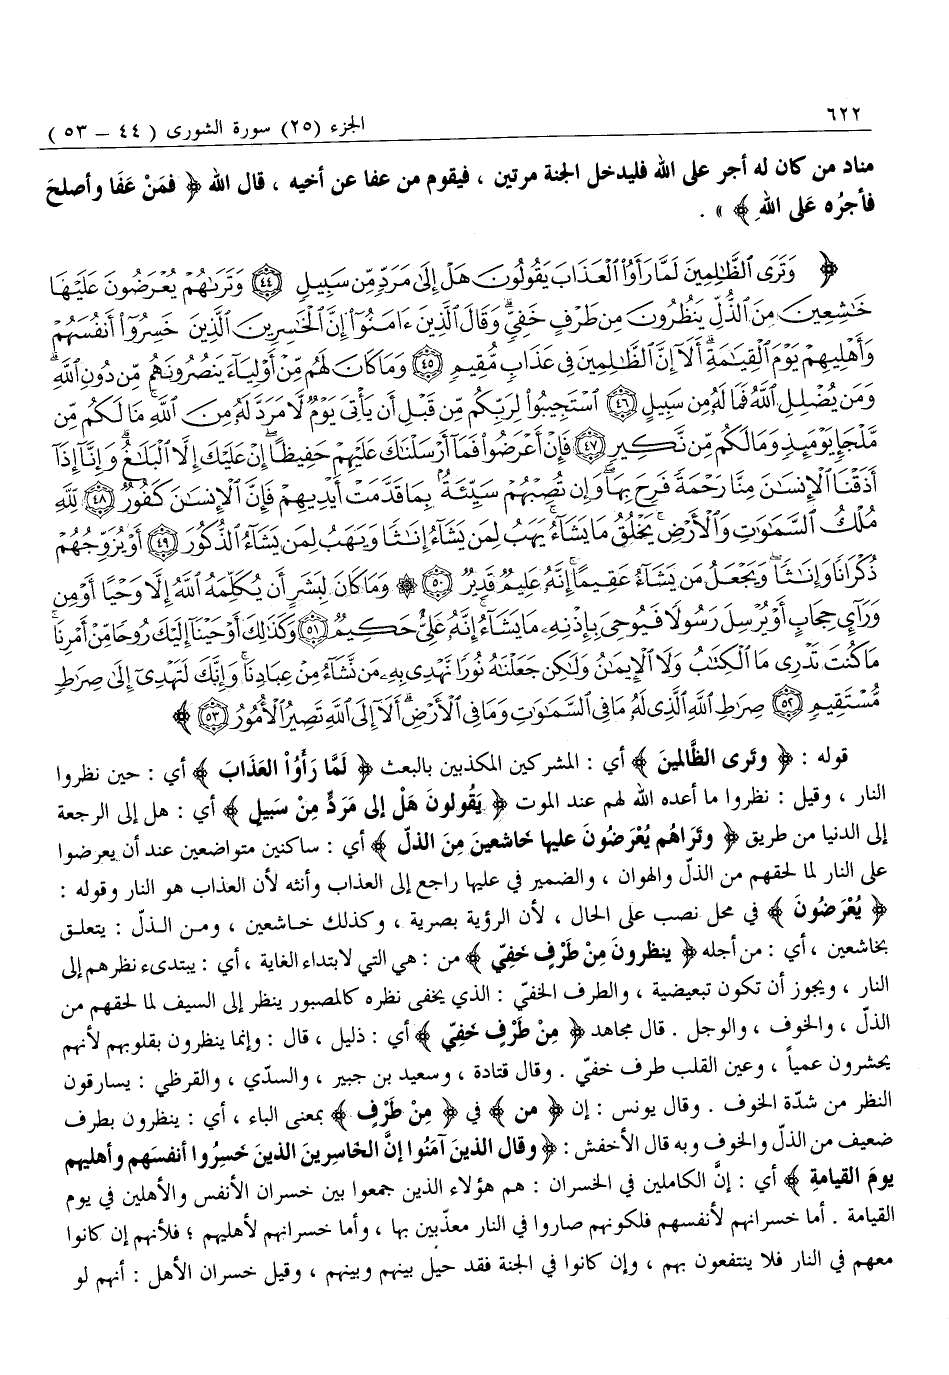 ٦٢٢
الجزء (٢٥) سورة الشورى ( ٤٤ - ٥٣ )
مناد من كان له أجر على الله فليدخل الجنة مرتين ، فيقوم من عفا عن أخيه ، قال الله ﴿ فمَنْ عَفَا وأصلحَ
فأجرُه عَلى اللهِ ﴾ » .
﴿ وَتَرَى ٱلظَّٰلِمِينَ لَمَّا رَأَوُا۟ ٱلْعَذَابَ يَقُولُونَ هَلْ إِلَىٰ مَرَدٍّ مِّن سَبِيلٍ ﴿٤٤﴾ وَتَرَىٰهُمْ يُعْرَضُونَ عَلَيْهَا
خَٰشِعِينَ مِنَ ٱلذُّلِّ يَنظُرُونَ مِن طَرْفٍ خَفِىٍّ ۗ وَقَالَ ٱلَّذِينَ ءَامَنُوٓا۟ إِنَّ ٱلْخَٰسِرِينَ ٱلَّذِينَ خَسِرُوٓا۟ أَنفُسَهُمْ
وَأَهْلِيهِمْ يَوْمَ ٱلْقِيَٰمَةِ ۗ أَلَآ إِنَّ ٱلظَّٰلِمِينَ فِى عَذَابٍ مُّقِيمٍ ﴿٤٥﴾ وَمَا كَانَ لَهُم مِّنْ أَوْلِيَآءَ يَنصُرُونَهُم مِّن دُونِ ٱللَّهِ ۗ
وَمَن يُضْلِلِ ٱللَّهُ فَمَا لَهُۥ مِن سَبِيلٍ ﴿٤٦﴾ ٱسْتَجِيبُوا۟ لِرَبِّكُم مِّن قَبْلِ أَن يَأْتِىَ يَوْمٌ لَّا مَرَدَّ لَهُۥ مِنَ ٱللَّهِ ۚ مَا لَكُم مِّن
مَّلْجَإٍ يَوْمَئِذٍ وَمَا لَكُم مِّن نَّكِيرٍ ﴿٤٧﴾ فَإِنْ أَعْرَضُوا۟ فَمَآ أَرْسَلْنَٰكَ عَلَيْهِمْ حَفِيظًا ۖ إِنْ عَلَيْكَ إِلَّا ٱلْبَلَٰغُ ۗ وَإِنَّآ إِذَآ
أَذَقْنَا ٱلْإِنسَٰنَ مِنَّا رَحْمَةً فَرِحَ بِهَا ۖ وَإِن تُصِبْهُمْ سَيِّئَةٌۢ بِمَا قَدَّمَتْ أَيْدِيهِمْ فَإِنَّ ٱلْإِنسَٰنَ كَفُورٌ ﴿٤٨﴾ لِّلَّهِ
مُلْكُ ٱلسَّمَٰوَٰتِ وَٱلْأَرْضِ ۚ يَخْلُقُ مَا يَشَآءُ ۚ يَهَبُ لِمَن يَشَآءُ إِنَٰثًا وَيَهَبُ لِمَن يَشَآءُ ٱلذُّكُورَ ﴿٤٩﴾ أَوْ يُزَوِّجُهُمْ
ذُكْرَانًا وَإِنَٰثًا ۖ وَيَجْعَلُ مَن يَشَآءُ عَقِيمًا ۚ إِنَّهُۥ عَلِيمٌ قَدِيرٌ ﴿٥٠﴾ ۞ وَمَا كَانَ لِبَشَرٍ أَن يُكَلِّمَهُ ٱللَّهُ إِلَّا وَحْيًا أَوْ مِن
وَرَآئِ حِجَابٍ أَوْ يُرْسِلَ رَسُولًا فَيُوحِىَ بِإِذْنِهِۦ مَا يَشَآءُ ۚ إِنَّهُۥ عَلِىٌّ حَكِيمٌ ﴿٥١﴾ وَكَذَٰلِكَ أَوْحَيْنَآ إِلَيْكَ رُوحًا مِّنْ أَمْرِنَا ۚ
مَا كُنتَ تَدْرِى مَا ٱلْكِتَٰبُ وَلَا ٱلْإِيمَٰنُ وَلَٰكِن جَعَلْنَٰهُ نُورًا نَّهْدِى بِهِۦ مَن نَّشَآءُ مِنْ عِبَادِنَا ۚ وَإِنَّكَ لَتَهْدِىٓ إِلَىٰ صِرَٰطٍ
مُّسْتَقِيمٍ ﴿٥٢﴾ صِرَٰطِ ٱللَّهِ ٱلَّذِى لَهُۥ مَا فِى ٱلسَّمَٰوَٰتِ وَمَا فِى ٱلْأَرْضِ ۗ أَلَآ إِلَى ٱللَّهِ تَصِيرُ ٱلْأُمُورُ ﴿٥٣﴾ ﴾
قوله : ﴿ وتَرى الظَّالمِينَ ﴾ أي : المشركين المكذبين بالبعث ﴿ لَمَّا رَأَوُا العَذَابَ ﴾ أي : حين نظروا
النار ، وقيل : نظروا ما أعده الله لهم عند الموت ﴿ يَقُولونَ هَلْ إلى مَرَدٍّ مِنْ سَبيلٍ ﴾ أي : هل إلى الرجعة
إلى الدنيا من طريق ﴿ وتَرَاهُم يُعْرَضُونَ عليها خَاشعينَ مِنَ الذلّ ﴾ أي : ساكنين متواضعين عند أن يعرضوا
على النار لما لحقهم من الذلّ والهوان ، والضمير في عليها راجع إلى العذاب وأنثه لأن العذاب هو النار وقوله :
﴿ يُعْرَضُونَ ﴾ في محل نصب على الحال ، لأن الرؤية بصرية ، وكذلك خاشعين ، ومن الذلّ : يتعلق
بخاشعين ، أي : من أجله ﴿ ينظرونَ مِنْ طَرْفٍ خَفِيّ ﴾ من : هي التي لابتداء الغاية ، أي : يبتدىء نظرهم إلى
النار ، ويجوز أن تكون تبعيضية ، والطرف الخفيّ : الذي يخفى نظره كالمصبور ينظر إلى السيف لما لحقهم من
الذلّ ، والخوف ، والوجل . قال مجاهد ﴿ مِنْ طَرْفٍ خَفِيّ ﴾ أي : ذليل ، قال : وإنما ينظرون بقلوبهم لأنهم
يحشرون عمياً ، وعين القلب طرف خفيّ . وقال قتادة ، وسعيد بن جبير ، والسدّي ، والقرظي : يسارقون
النظر من شدّة الخوف . وقال يونس : إن ﴿ من ﴾ في ﴿ مِنْ طَرْفٍ ﴾ بمعنى الباء ، أي : ينظرون بطرف
ضعيف من الذلّ والخوف وبه قال الأخفش : ﴿ وقال الذينَ آمَنُوا إنَّ الخَاسِرينَ الذينَ خَسِرُوا أنفسَهم وأهليهم
يومَ القيامةِ ﴾ أي : إنَّ الكاملين في الخسران : هم هؤلاء الذين جمعوا بين خسران الأنفس والأهلين في يوم
القيامة . أما خسرانهم لأنفسهم فلكونهم صاروا في النار معذّبين بها ، وأما خسرانهم لأهليهم ؛ فلأنهم إن كانوا
معهم في النار فلا ينتفعون بهم ، وإن كانوا في الجنة فقد حيل بينهم وبينهم ، وقيل خسران الأهل : أنهم لو